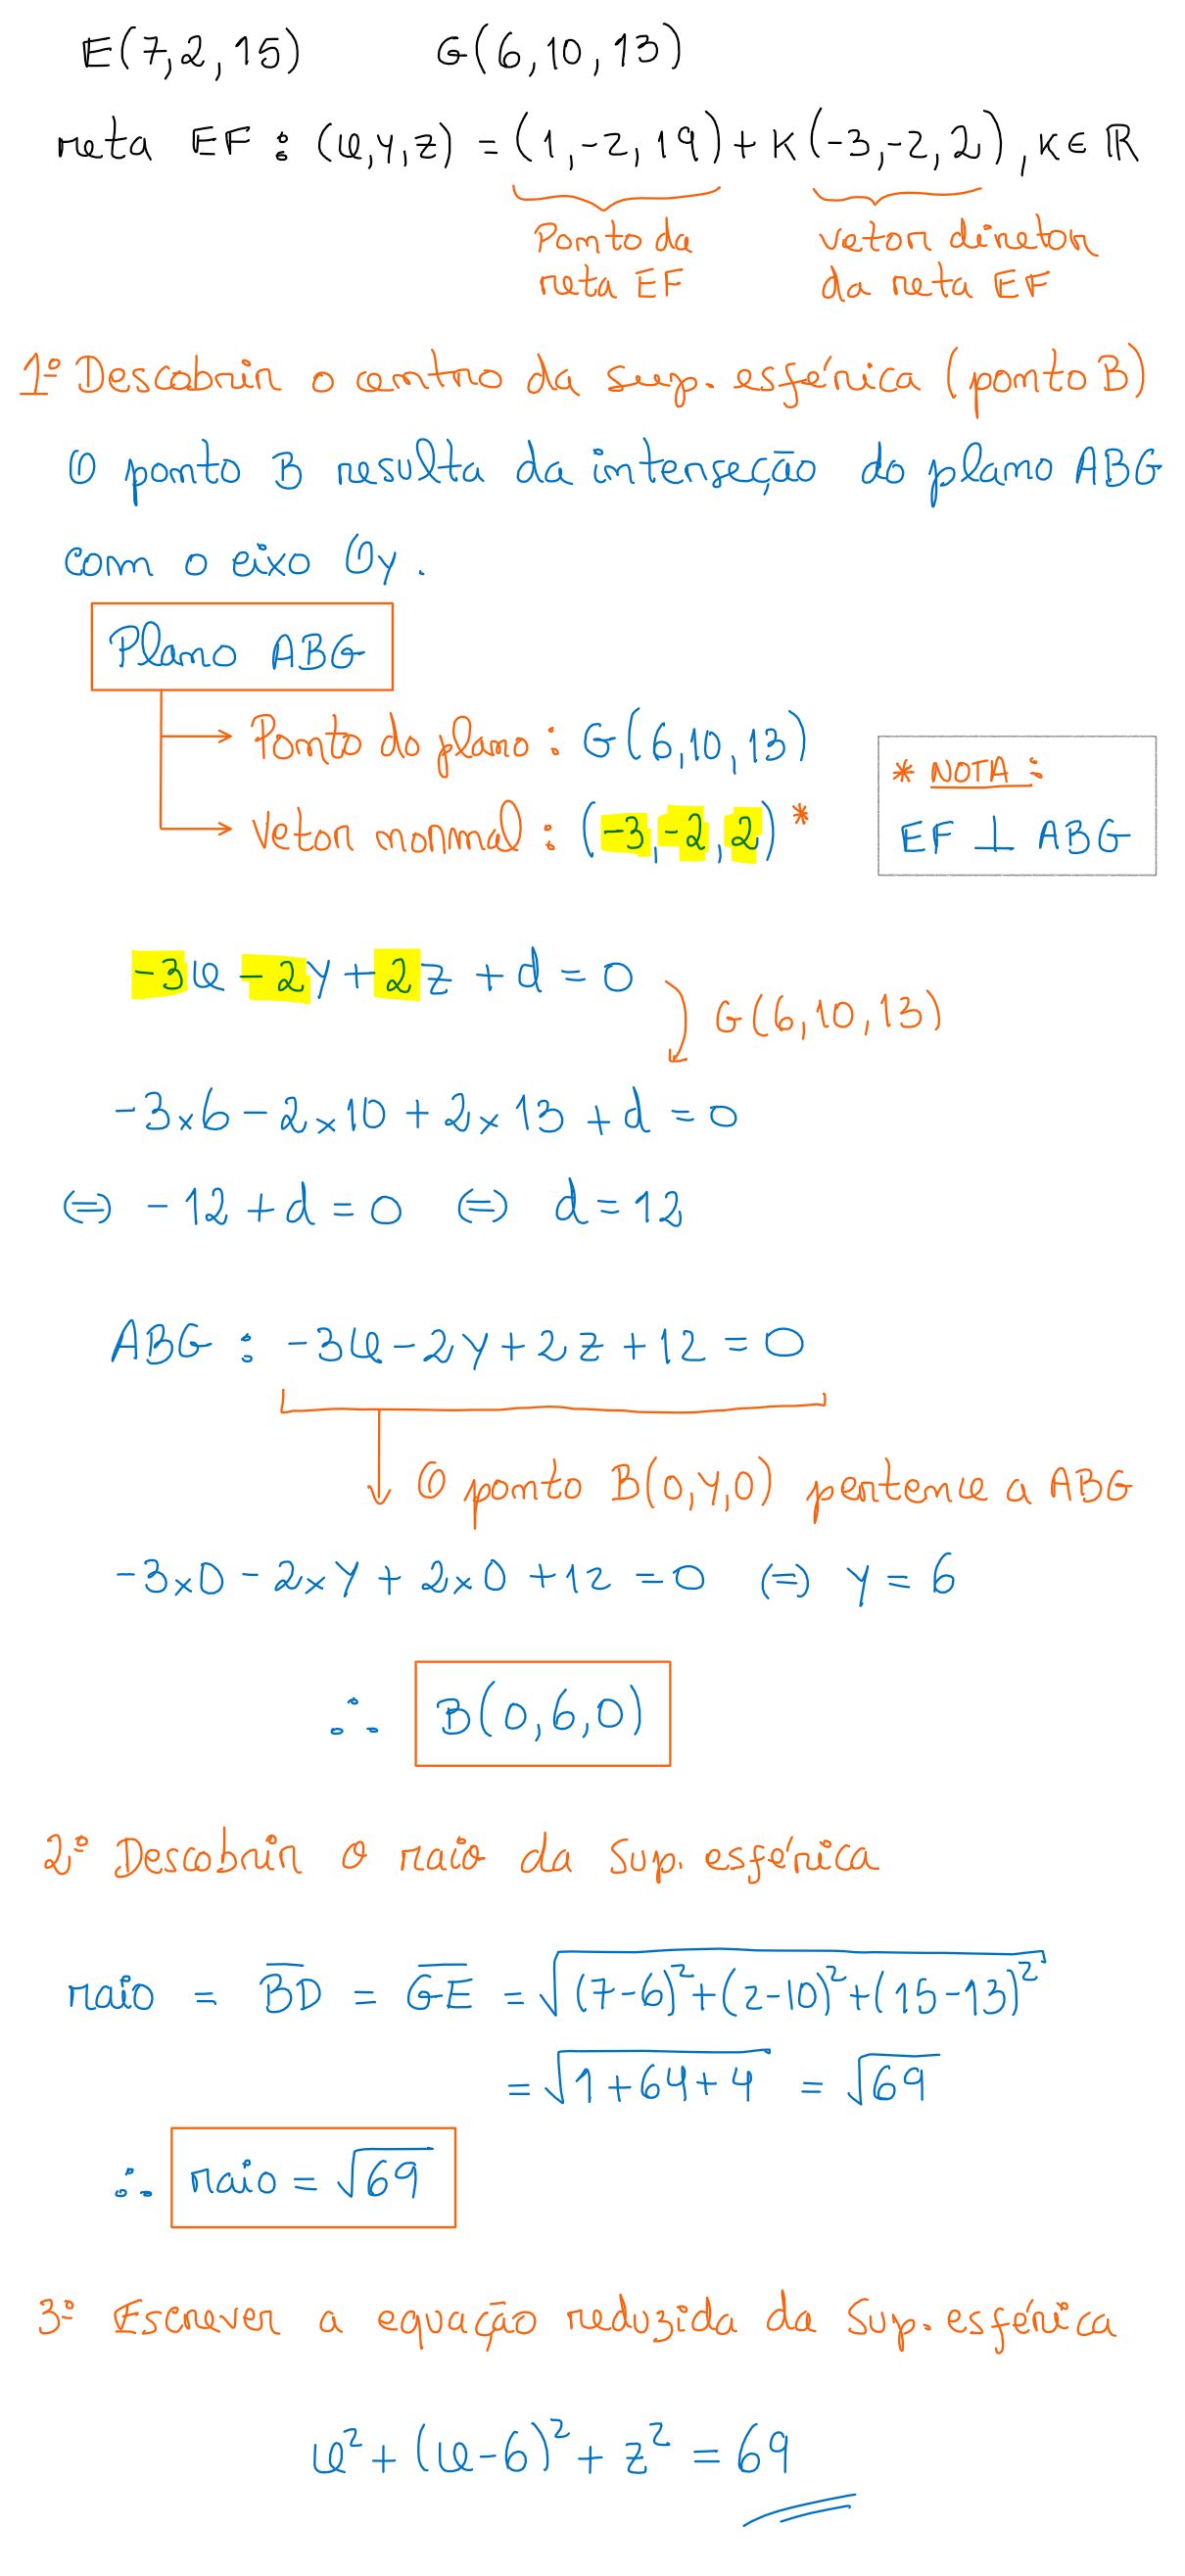 E(7,2,15) G(6,10,13)
reta EF : (x,y,z) = (1,-2,19) + K(-3,-2,2), K∈ℝ
Ponto da vetor diretor
reta EF da reta EF
1º Descobrir o centro da sup. esférica (ponto B)
O ponto B resulta da interseção do plano ABG
com o eixo Oy.
Plano ABG
Ponto do plano : G(6,10,13)
* NOTA :
Vetor normal : (-3,-2,2) *
EF ⊥ ABG
-3x -2y +2z + d = 0
G(6,10,13)
-3×6 - 2×10 + 2×13 + d = 0
(=) -12 + d = 0 (=) d = 12
ABG : -3x - 2y + 2z + 12 = 0
O ponto B(0,y,0) pertence a ABG
-3×0 - 2×y + 2×0 + 12 = 0 (=) y = 6
∴ B(0,6,0)
2º Descobrir o raio da sup. esférica
raio = B̅D̅ = G̅E̅ = √((7-6)²+(2-10)²+(15-13)²)
= √(1+64+4) = √69
∴ raio = √69
3º Escrever a equação reduzida da Sup. esférica
x² + (x-6)² + z² = 69